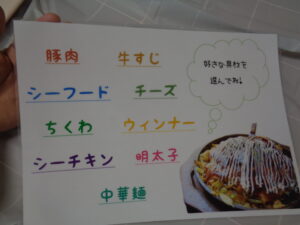 豚肉 牛すじ
シーフード チーズ
ちくわ ウィンナー
シーチキン 明太子
中華麺
好きな具材を
選んでね♩